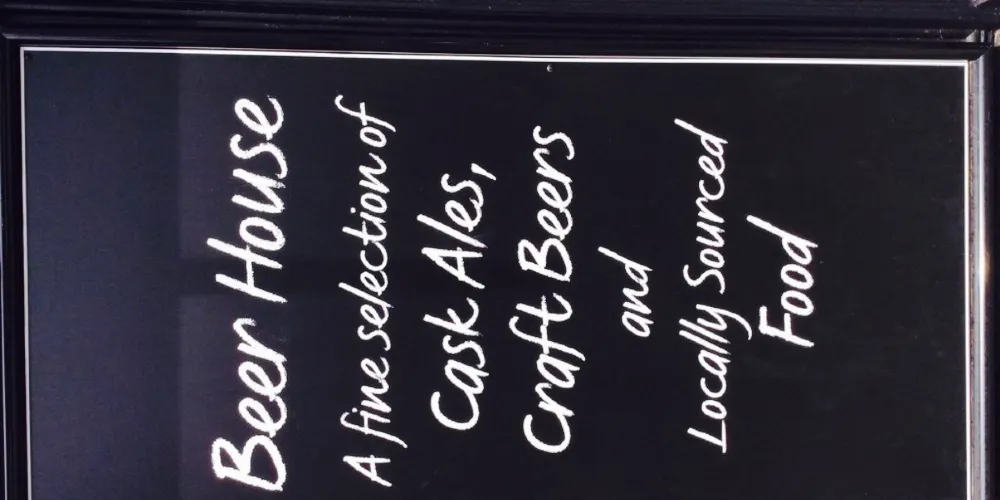 Beer House
A fine selection of
Cask Ales,
Craft Beers
and
Locally Sourced
Food